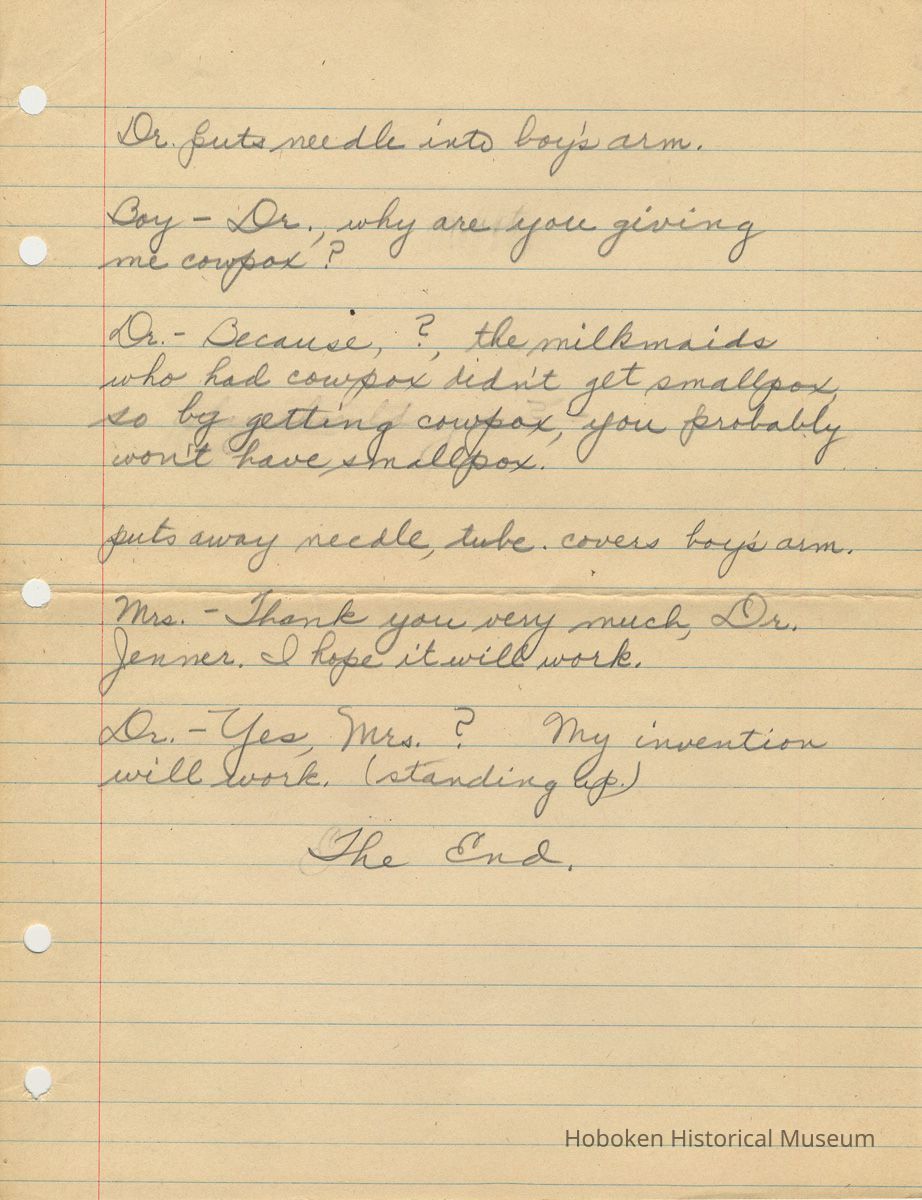 Dr. puts needle into boy's arm.
Boy - Dr., why are you giving
me cowpox?
Dr. - Because, ?, the milkmaids
who had cowpox didn't get smallpox,
so by getting cowpox, you probably
won't have smallpox.
puts away needle, tube. covers boy's arm.
Mrs. - Thank you very much, Dr.
Jenner. I hope it will work.
Dr. - Yes, Mrs. ? My invention
will work. (standing up.)
The End.
Hoboken Historical Museum